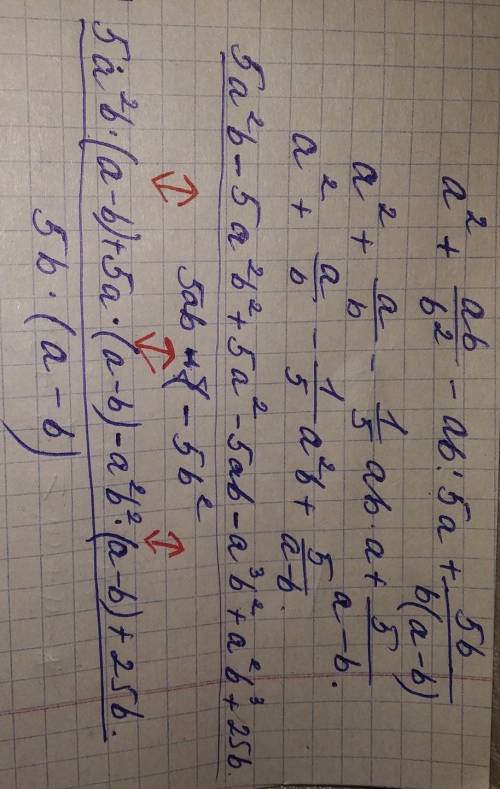 a² + ab/b² - ab : 5a + 5b/b(a-b)
a² + a/b - 1/5 ab · a + 5/a-b.
a² + a/b - 1/5 a²b + 5/a-b.
5a²b - 5a²b² + 5a² - 5ab - a³b² + a²b³ + 25b.
5ab - 5b²
5a²b·(a-b)+5a·(a-b)-a²b²·(a-b)+25b.
5b·(a-b)